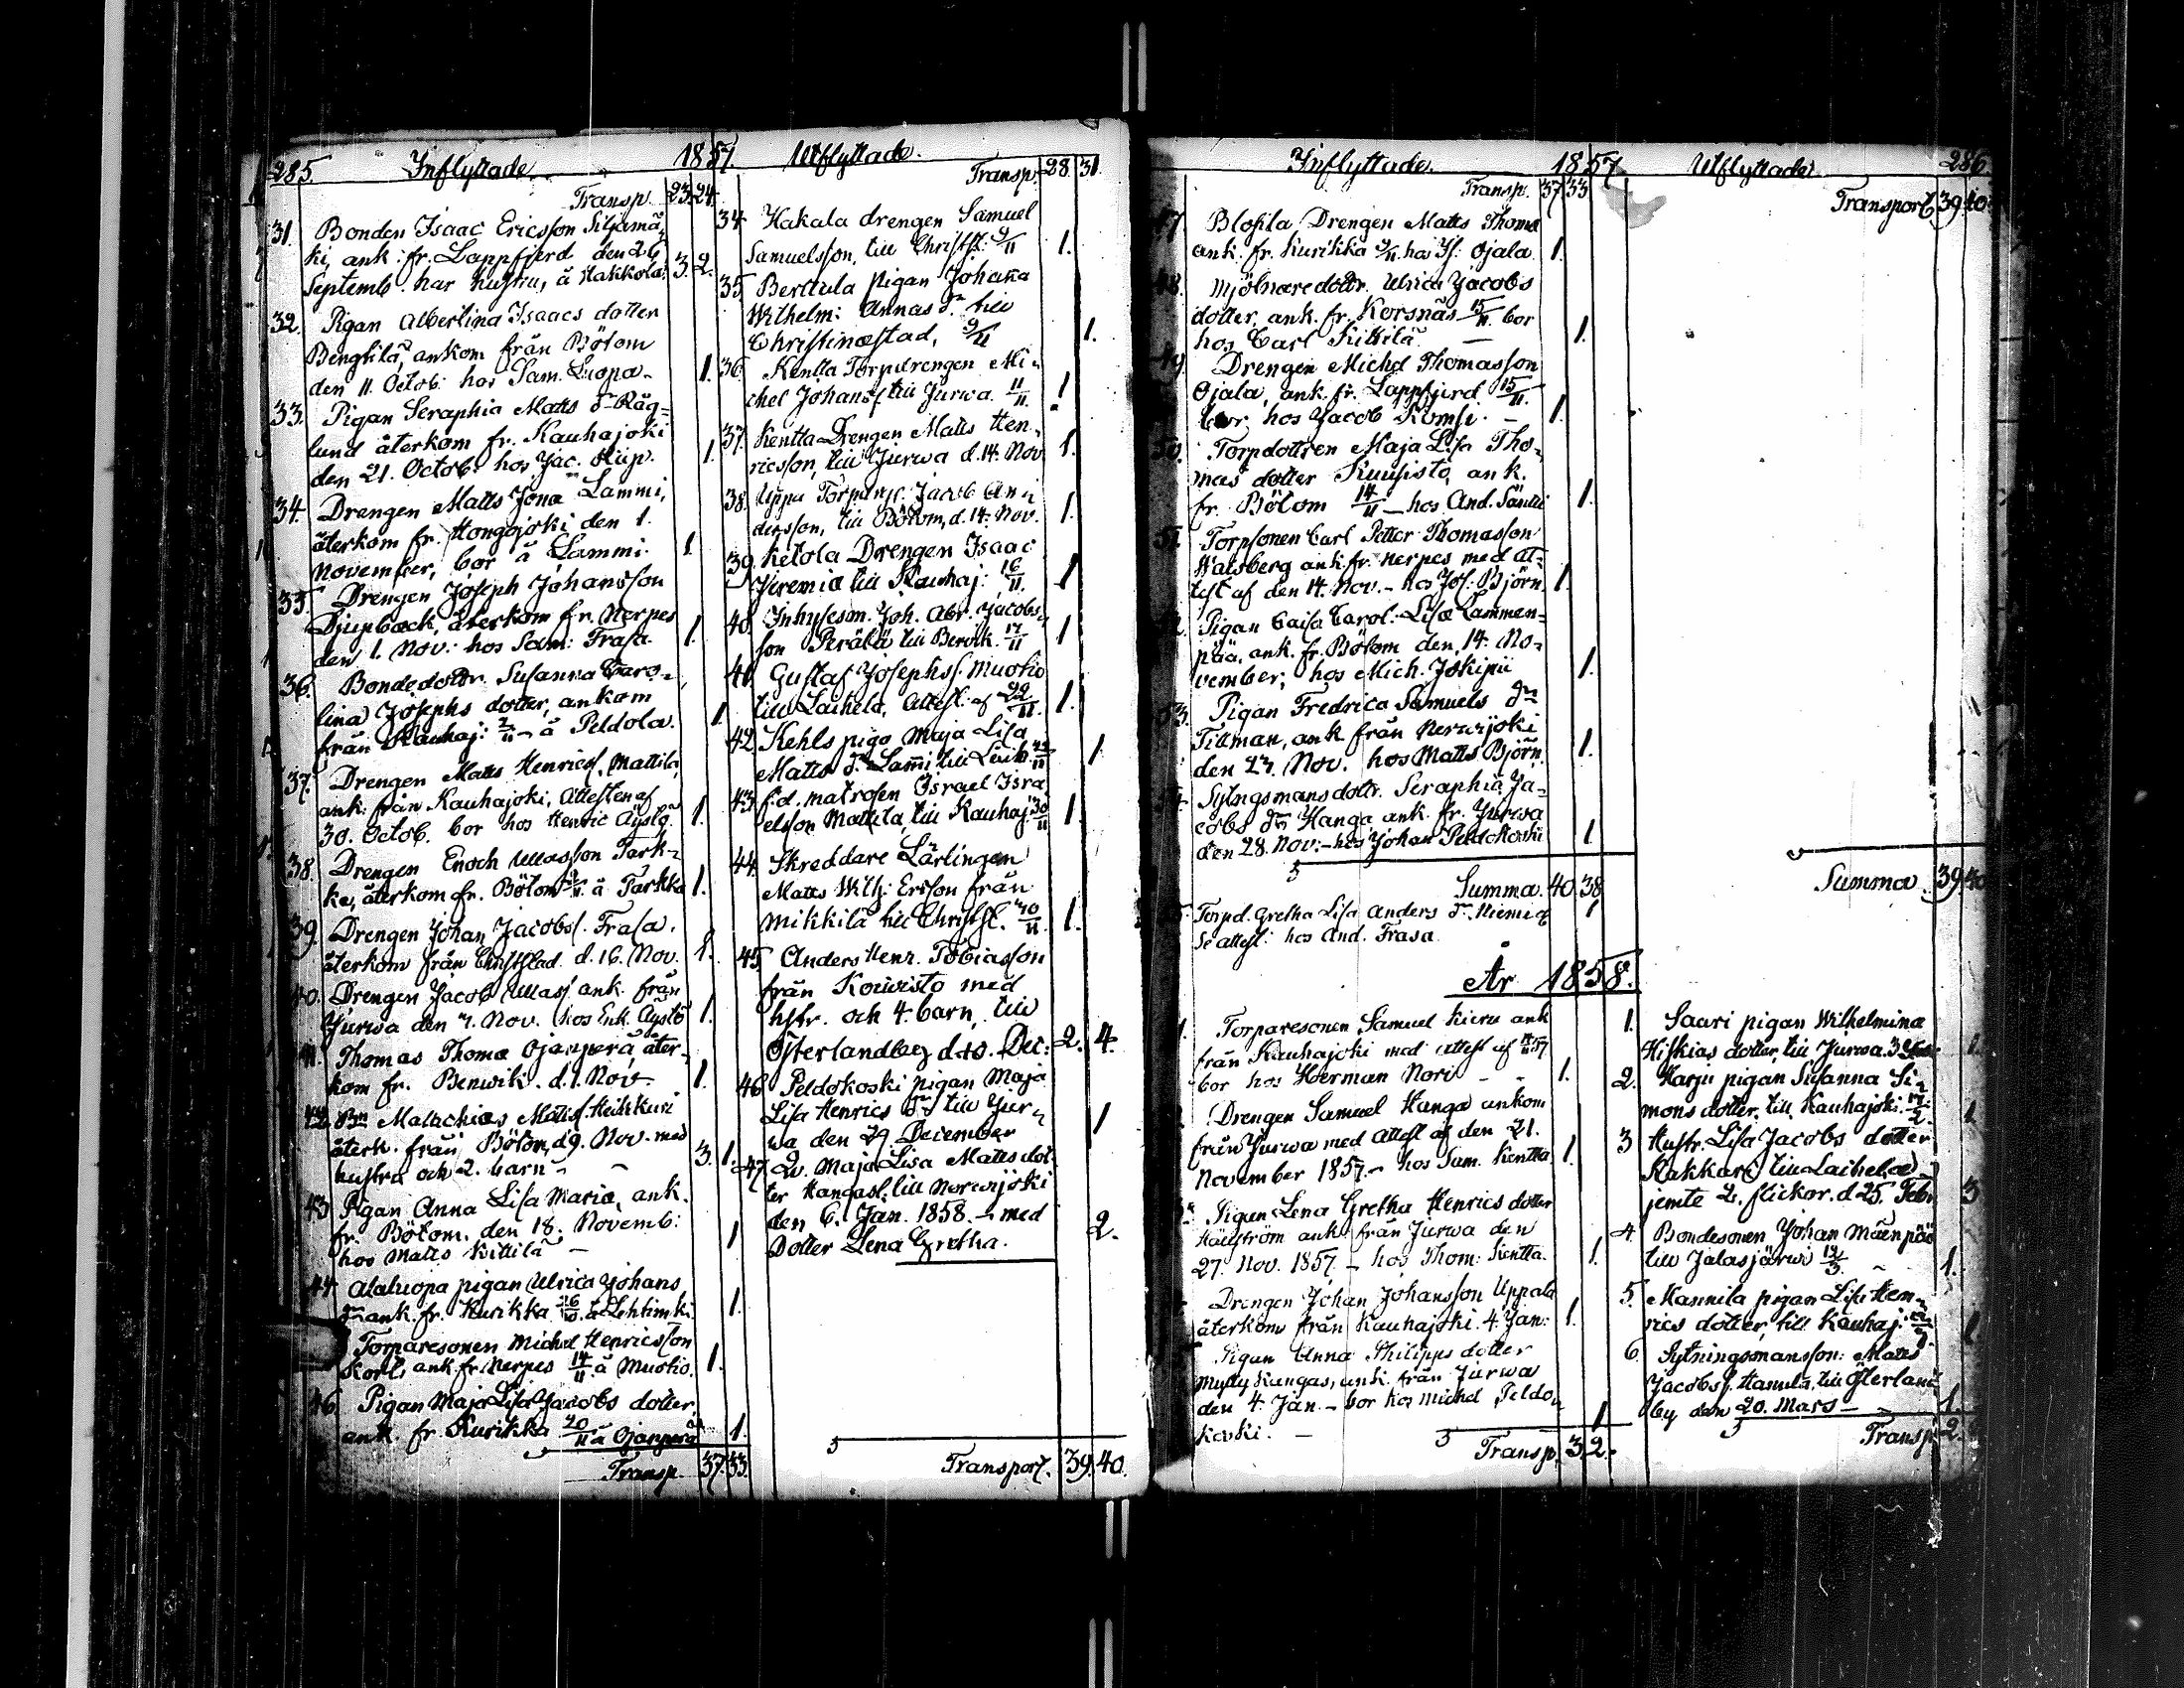 285. Inflyttade 1857.
Transp. 23. 24.
31. Bonden Isaac Ericsson Siljamä-
ki, ank: fr. Lappfjerd den 26
Septemb. har hustru, å Hakkola. 3. 2.
32. Pigan Albertina Isaacs dotter
Bengtilä, ankom från Bötom
den 11. Octob: hos Sam. Luopa. 1.
33. Pigan Seraphia Matts dr Räg-
lund återkom fr. Kauhajoki
den 21. Octob. hos Jac. 1.
34. Drengen Matts Jonæ Lammi,
återkom fr. Hongojoki den 1.
November, bor å Lammi. 1.
35. Drengen Joseph Johansson
Djupback, återkom fr. Nerpes
den 1. Nov. hos Sam: Frasa. 1.
36. Bondedottr. Susanna Caro-
lina Josephs dotter, ankom
från Kauhaj: 2/11 å Peldola. 1.
37. Drengen Matts Henrics. Mattila,
ank. från Kauhajoki, Attesten af
30. Octob. bor hos Henric Äystö. 1.
38. Drengen Enoch Ullasson Tark-
ka, återkom fr. Bötom å Tarkka 1.
39. Drengen Johan Jacobs. Frasa,
återkom från Christstad. d. 16. Nov. 1.
40. Drengen Jacob Ullas ank. från
Jurwa den 7. Nov. hos Enk. Äystö 1.
41. Thomas Thomæ Ojanperä åter-
kom fr. Benwik. d. 1. Nov. 1.
42. Malachias Matts. Heikkuri
återk. från Bötom, d 9. Nov. med
hustru och 2. barn - - 3. 1.
43 Pigan Anna Lisa Maria, ank.
fr. Bötom. den 18. Novemb:
hos Matts Kittilä - 1
44. Alaluopa pigan Ulrica Johans
dr ank. fr. Kurikka å Lehtimäki 1.
Torparesonen Michel Henricsson
Korb, ank. fr. Nerpes 14/11 å Muotio. 1.
46 Pigan Maja Lisa Jacobs dotter,
ank. fr. Kurikka 20/11 å Ojanperä 1.
Transp. 37. 33.
Utflyttade.
Transp. 28. 31.
34 Hakala drengen Samuel
Samuelsson, till Christst: 9/11 1.
35 Berttula pigan Johanna
Wilhelm: Annas dr till
Christinæstad, 9/11 1.
36. Kentta Torpdrengen Mi-
chel Johans. till Jurwa. 11/11. 1
37. Kentta Drengen Matts Hen-
ricsson, till Jurwa d. 14. Nov 1.
38. Uppa Jacob An-
dersson, till Bötom, d. 14. Nov. 1.
39. Ketola Drengen Isaac
Jeremiæ till Kauhaj: 16/11. 1
40. Inhysesm. Joh. Abr. Jacobs-
son Perälä till Benvik. 17/11 1
41. Gustaf Josephs. Muotio
till Laihela, Attest. af 22/11. 1.
42. Kehls piga Maja Lisa
Matts dr Lammi till 1
43. f.d. matrosen Israel Isra-
elsson Mattila, till Kauhaj: 30/11 1.
44. Skreddare Lärlingen
Matts Wilh: Ersson från
Mikkilä till Christst. 1.
45 Anders Henr. Tobiasson
från Koivisto med
hstr. och 4. barn, till
Österlandby d. 10. Dec: 2. 4.
46 Peldokoski pigan Maja
Lisa Henrics dr till Jur-
wa den 29. December 1
47. Maja Lisa Matts dot-
ter Hangas: till Norwijoki
den 6. Jan. 1858. - med
Dotter Lena Gretha. 2.
Transport. 39. 40.
Inflyttade. 1857.
Transp. 37 33
47 Drengen Matts Thomæ
ank. fr. Kurikka 9/11. hos Is: Ojala. 1.
48. Mjölnaredottr. Ulrica Jacobs
dotter, ank. fr. Korsnäs 15/11. bor
hos Carl Kittilä. - 1.
49. Drengen Michel Thomasson
Ojala, ank. fr. Lappfjerd 15/11.
bor hos Jacob Komsi. - 1.
50. Torpdottren Maja Lisa Tho-
mas dotter Kuusisto, ank.
fr. Bötom 14/11 - hos And. Säntti 1.
51. Torpsonen Carl Petter Thomasson
Walsberg ank. fr. Nerpes med at-
test af den 14. Nov. - hos Jos: Björn. 1.
52. Pigan Caisa Carol. Lisa Lammen-
pää, ank. fr. Bötom den, 14. No-
vember; hos Mich. Jokipii 1.
53. Pigan Fredrica Samuels dr
Tillman, ank. från Nerwijoki
den 23. Nov. hos Matts Björn. 1.
54. Sytngsmansdottr. Seraphia Ja-
cobs dr Hanga ank. fr. Jurwa
den 28. Nov: - hos Johan Peldokoski 1
Summa. 40. 38.
Torpd. Gretha Lisa Anders dr Niemi
Se attest: hos And. Frasa. 1
År 1858.
1. Torparesonen Samuel Kieru ank
från Kauhajoki med attest af
bor hos Herman Nori - - 1.
Drengen Samuel Hanga ankom
från Jurwa med attest af den 21.
November 1857. - hos Sam. Kentta. 1.
Pigan Lena Gretha Henrics dotter
Häggström ank. från Jurwa den
27. Nov. 1857 - hos Thom: Kentta. 1.
Drengen Johan Johansson Uppala
återkom från Kauhajoki. 4. Jan: 1.
Pigan Anna Philipps dotter
Myllykangas, ank. från Jurwa
den 4. Jan. - bor hos Michel Peldo-
koski. - 1
Transp. 3 2.
Utflyttade 286.
Transport 39. 40.
Summa. 39 40
1. Saari pigan Wilhelmina
Hiskias dotter, till Jurwa. 1.
2. Harju pigan Susanna Si-
mons dotter, till Kauhajoki. 1
3 Hustr. Lisa Jacobs dotter
Kakkari till Laihela
jemte 2. flickor. d. 25. Febr 3
4 Bondesonen Johan Mäenpää
till Jalasjärwi 1.
5. Mannila pigan Lisa Hen-
rics dotter, till Kauhaj: 1
6. Sytningsmansson: Matts
Jacobs. Hannula, till Österland-
by den 20. Mars - 1.
Transp 2.